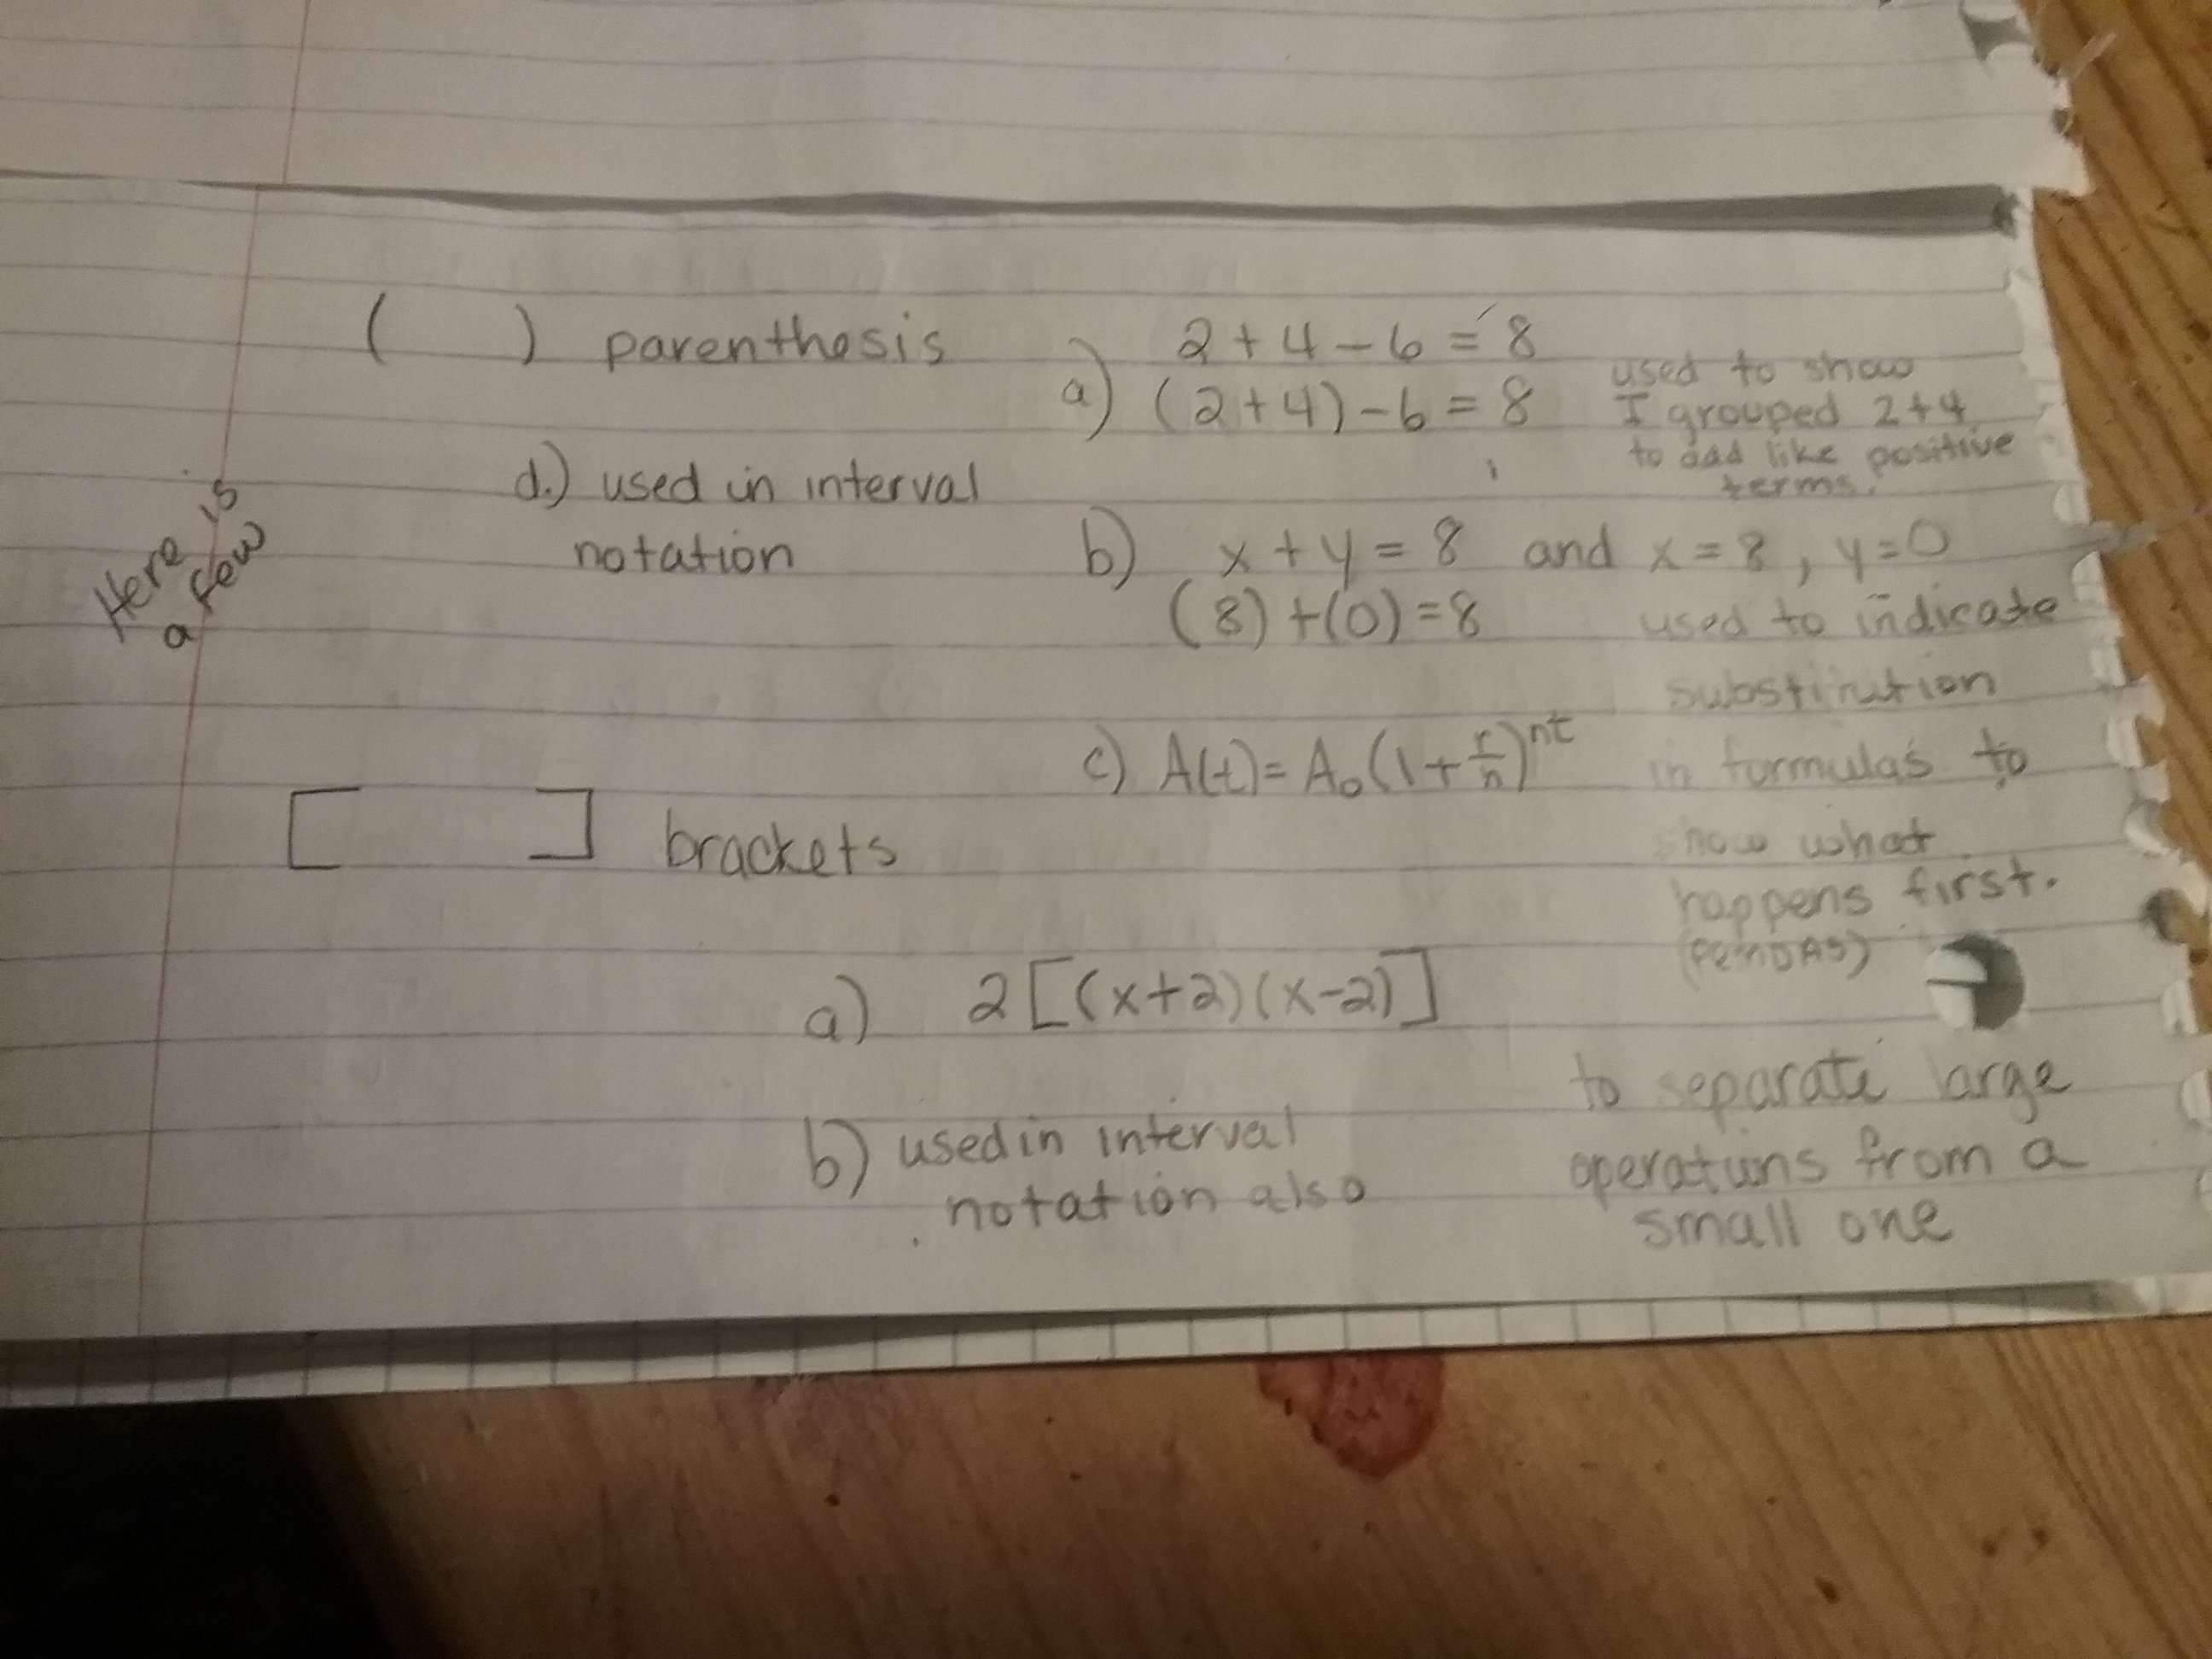 Here is
a few
( ) parenthesis
2 + 4 - 6 = 8
a) (2+4) - 6 = 8
used to show
I grouped 2+4
to add like positive
terms.
d.) used in interval
notation
b) x + y = 8 and x = 8, y = 0
(8) + (0) = 8
used to indicate
substitution
c) A(t) = A₀(1 + r/n)^nt
in formulas to
show what
happens first.
(PEMDAS)
[ ] brackets
a) 2[(x+2)(x-2)]
to separate large
operations from a
small one
b) used in interval
notation also